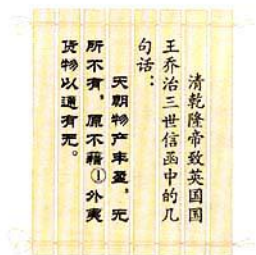 清乾隆帝致英国国
王乔治三世信函中的几
句话：
天朝物产丰盈，无
所不有，原不藉①外夷
货物以通有无。